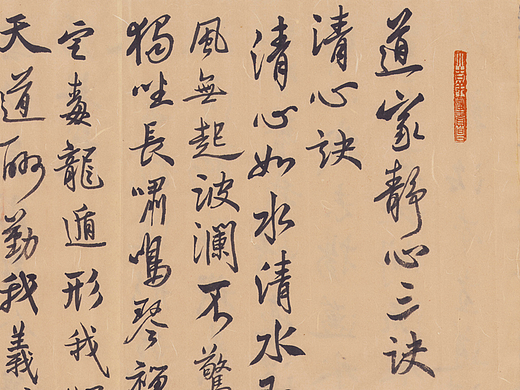 道家靜心三訣
清心訣
清心如水清水
風無起波瀾不驚
獨坐長嘯鳴琴禪
定毒龍遁形我
天道酬勤我義